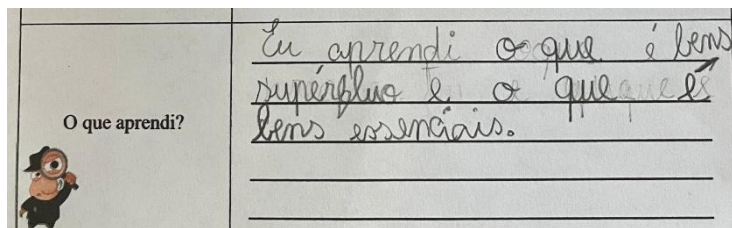 O que aprendi?
Eu aprendi o que é bens
supérfluo e o que é
bens essenciais.